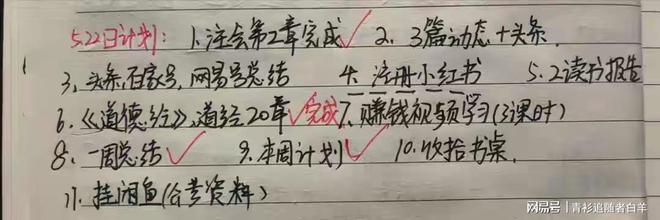 5.22日计划: 1.注会第2章完成✓ 2. 3篇动态+头条.
3.头条,百家号,网易号总结 4. 注册小红书 5.2读书报告
6.《道德经》,道经20章✓完成 7.赚钱视频学习(3课时)
8.一周总结✓ 9.本周计划✓ 10.收拾书桌.
11.挂闲鱼(会考资料)
网易号 | 青衫追随者白羊